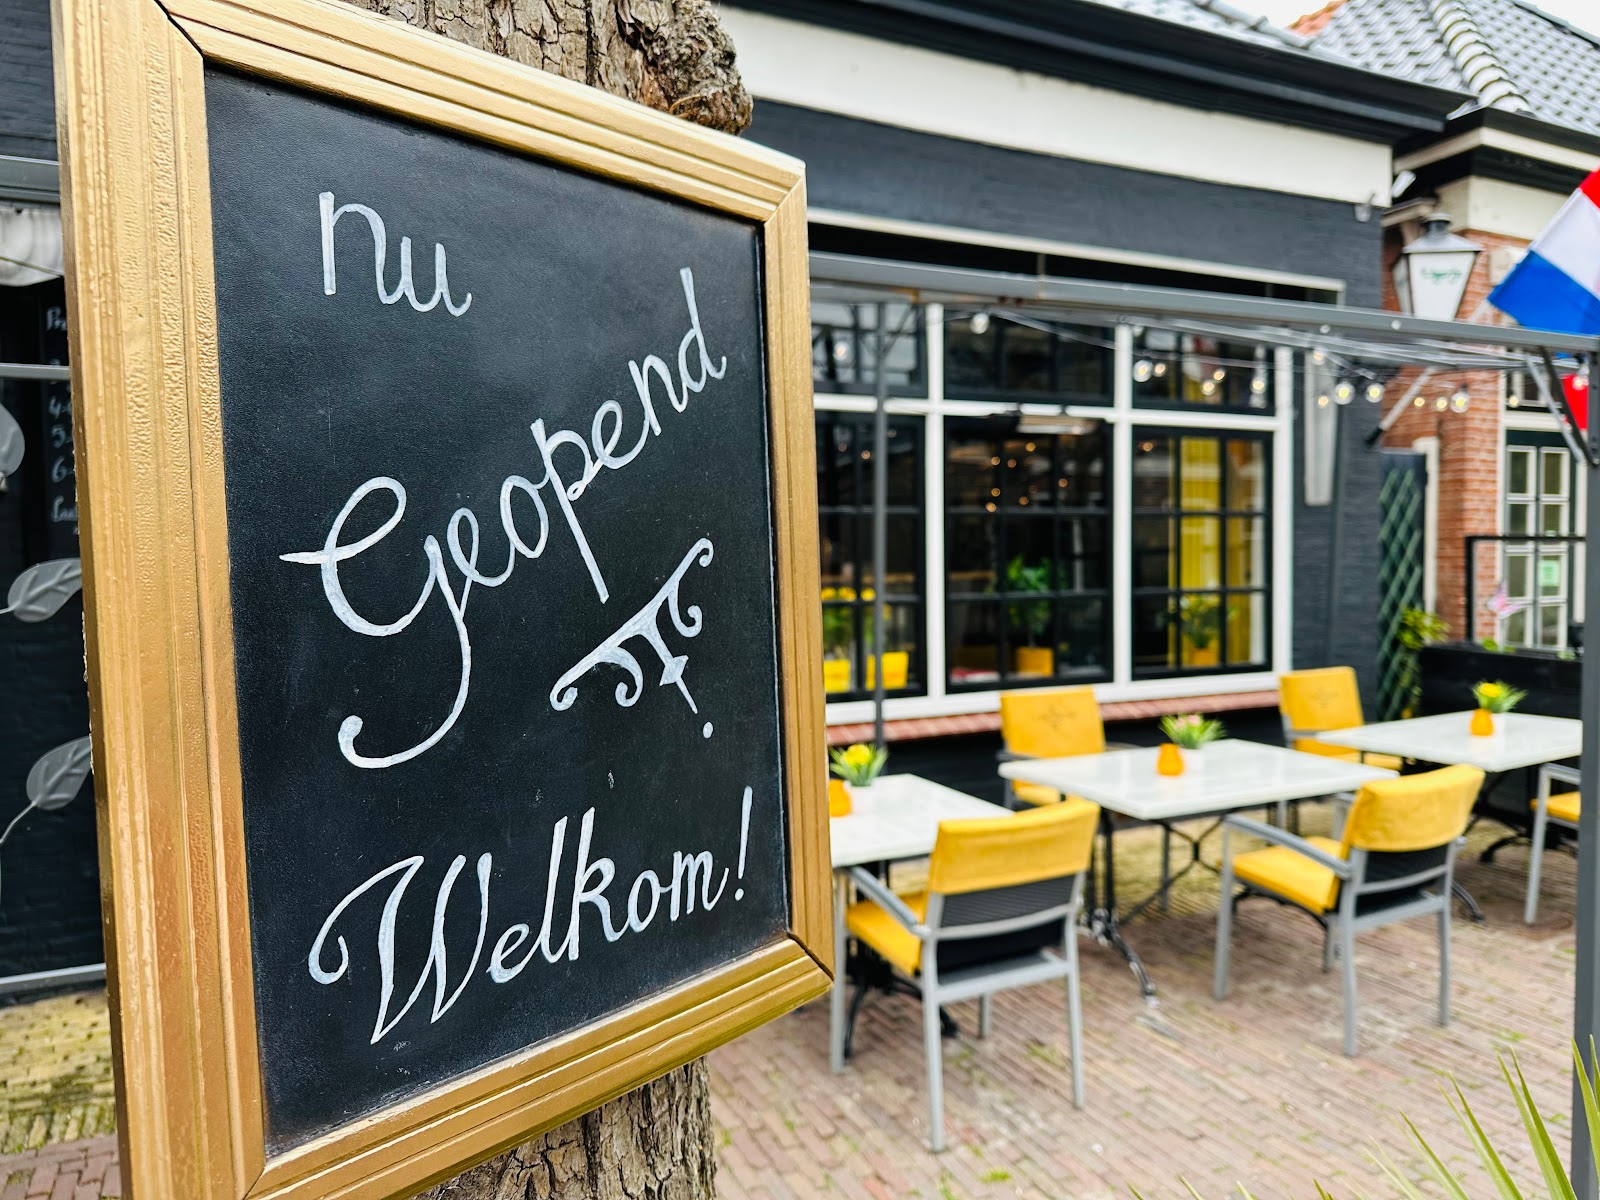 nu
Geopend
Welkom!